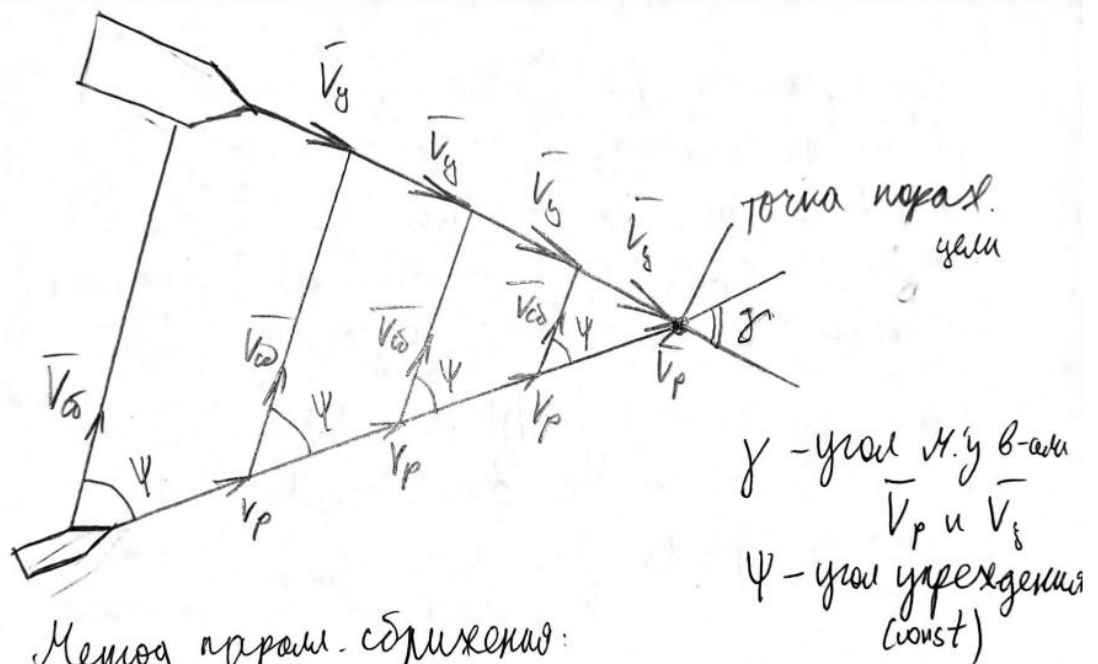 V̅ц
V̅ц
V̅ц
V̅ц
точка пораж.
цели
V̅сб
V̅сб
V̅сб
V̅сб
ψ
ψ
ψ
ψ
γ
Vр
Vр
Vр
V̅р
γ – угол м/у в-ами
V̅р и V̅ц
ψ – угол упреждения
(const)
Метод паралл. сближения: